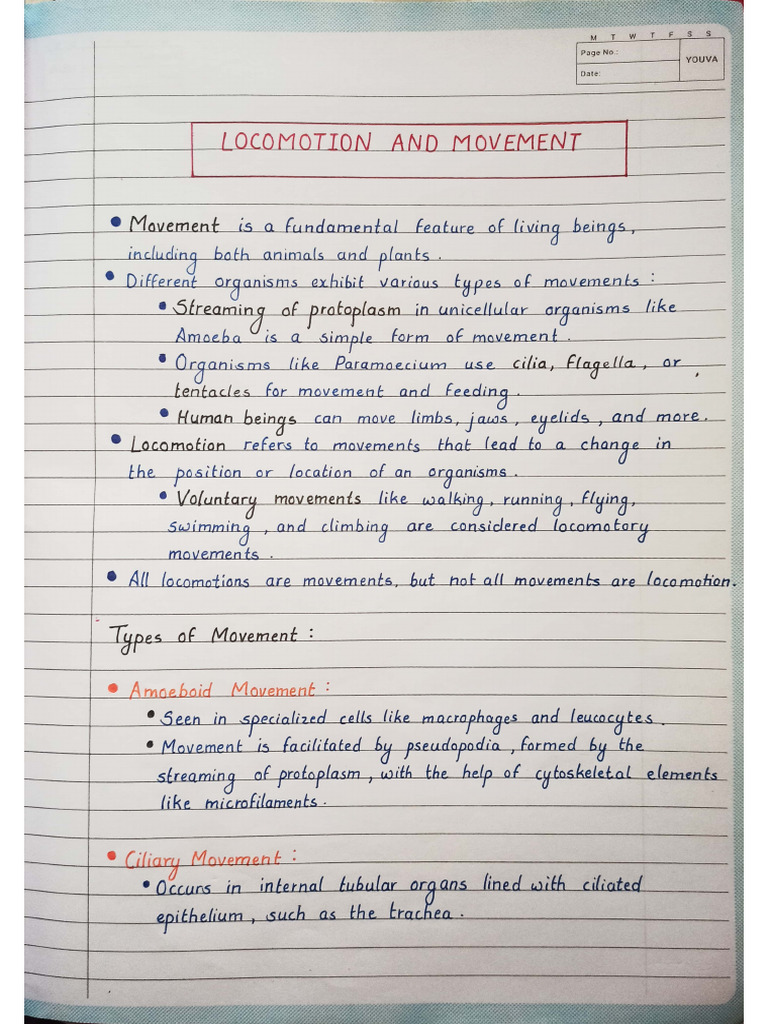 M T W T F S S
Page No.:
YOUVA
Date:
LOCOMOTION AND MOVEMENT
• Movement is a fundamental feature of living beings,
including both animals and plants.
• Different organisms exhibit various types of movements:
• Streaming of protoplasm in unicellular organisms like
Amoeba is a simple form of movement.
• Organisms like Paramoecium use cilia, flagella, or
tentacles for movement and feeding.
• Human beings can move limbs, jaws, eyelids, and more.
• Locomotion refers to movements that lead to a change in
the position or location of an organisms.
• Voluntary movements like walking, running, flying,
swimming, and climbing are considered locomotory
movements.
• All locomotions are movements, but not all movements are locomotion.
Types of Movement:
• Amoeboid Movement:
• Seen in specialized cells like macrophages and leucocytes.
• Movement is facilitated by pseudopodia, formed by the
streaming of protoplasm, with the help of cytoskeletal elements
like microfilaments.
• Ciliary Movement:
• Occurs in internal tubular organs lined with ciliated
epithelium, such as the trachea.